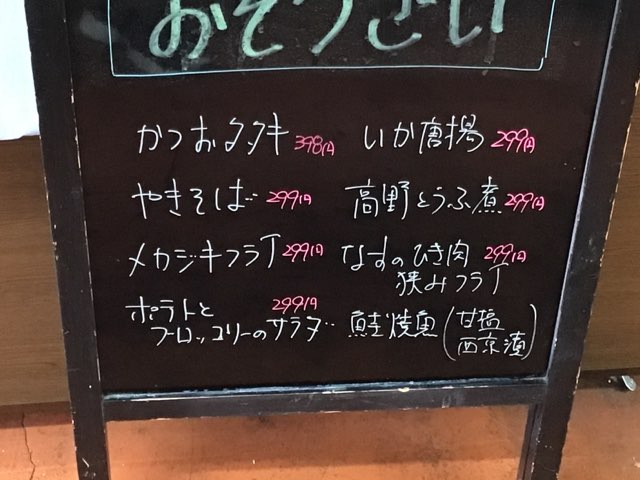 おそうざい
かつおタタキ 398円
いか唐揚 299円
やきそば 299円
高野とうふ煮 299円
メカジキフライ 299円
なすのひき肉 299円
狭みフライ
ポテトと 299円
ブロッコリーのサラダ
鮭焼魚 (甘塩
西京漬)